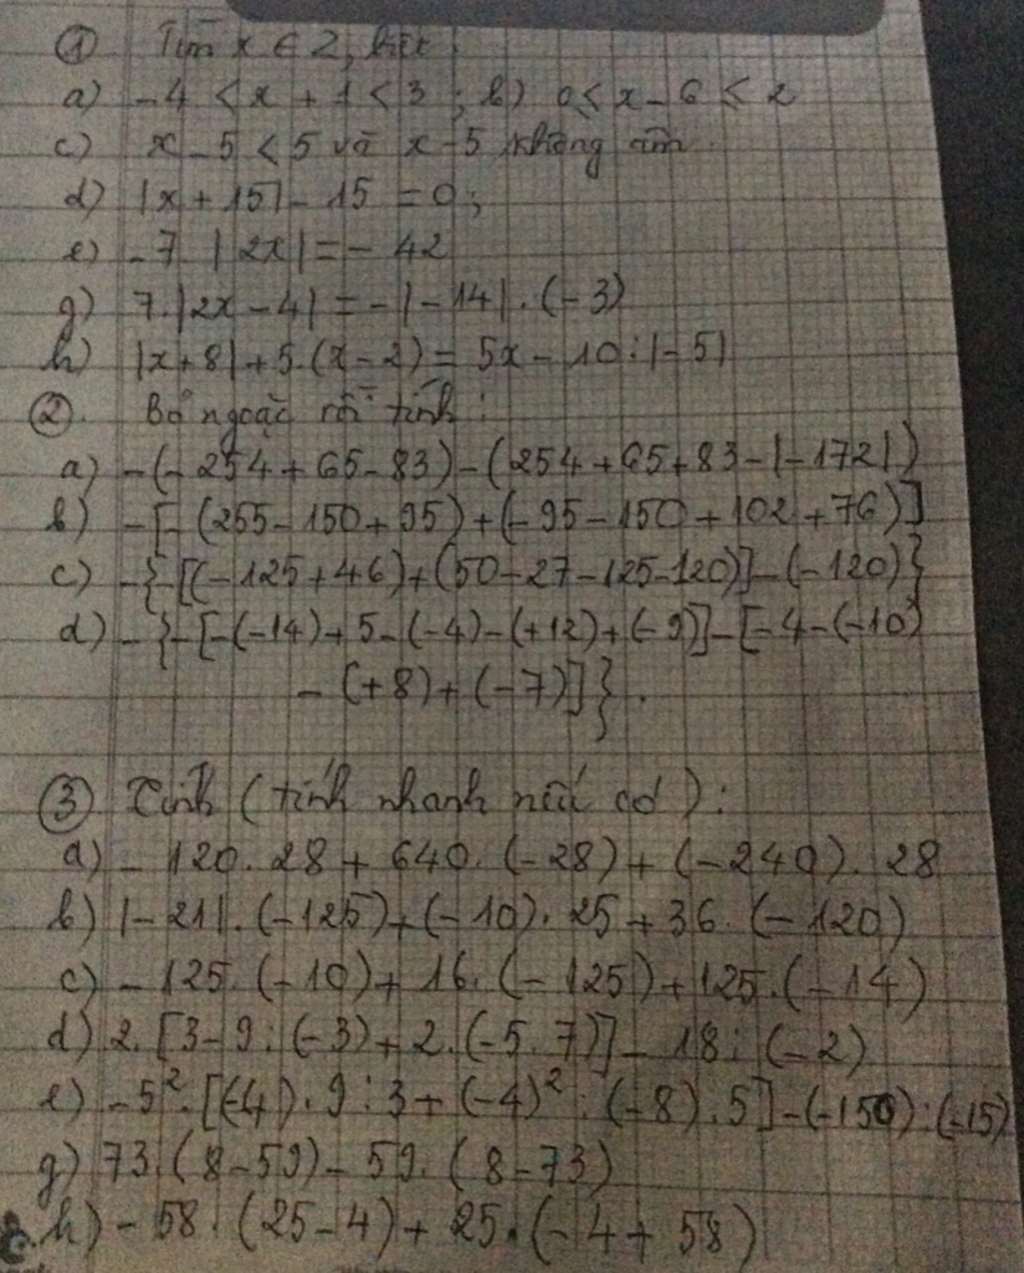 ① Tìm x ∈ Z, biết:
a) -4 < x + 1 < 3 ; b) 0 ≤ x - 6 ≤ 2
c) x - 5 < 5 và x - 5 không âm.
d) |x + 15| - 15 = 0;
e) -7. |2x| = - 42
g) 7.|2x - 4| = -|-14|. (-3)
h) |x+8| + 5.(x-2) = 5x - 10:|-5|
②. Bỏ ngoặc rồi tính:
a) -(-254+65-83)-(254+65+83-|-172|)
b) -[-(255-150+95)+(-95-150+102+76)]
c) -{-[(-125+46)+(50-27-125-120)]-(-120)}
d) -{-[-(-14)+5-(-4)-(+12)+(-9)]-[-4-(-10)
-(+8)+(-7)]}.
③. Tính (tính nhanh nếu có):
a) - 120. 28 + 640. (-28) + (-240). 28
b) |-21|. (-125)+(-10). 25 + 36. (-120)
c) - 125. (-10)+ 16. (-125)+125.(-14)
d) 2. [3-9:(-3)+2.(-5.7)] - 18: (-2)
e) -5². [(-4).9:3+(-4)²:(-8).5]-(-150):(-15)
g) 73.(8-59)-59.(8-73)
h) - 58. (25-4)+ 25.(-4+ 58)